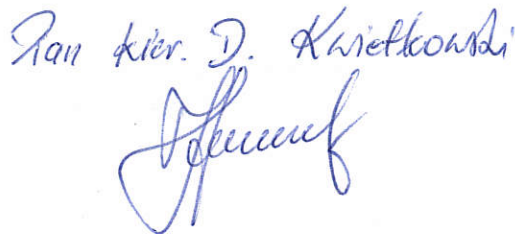 Pan kier. D. Kwietkowski